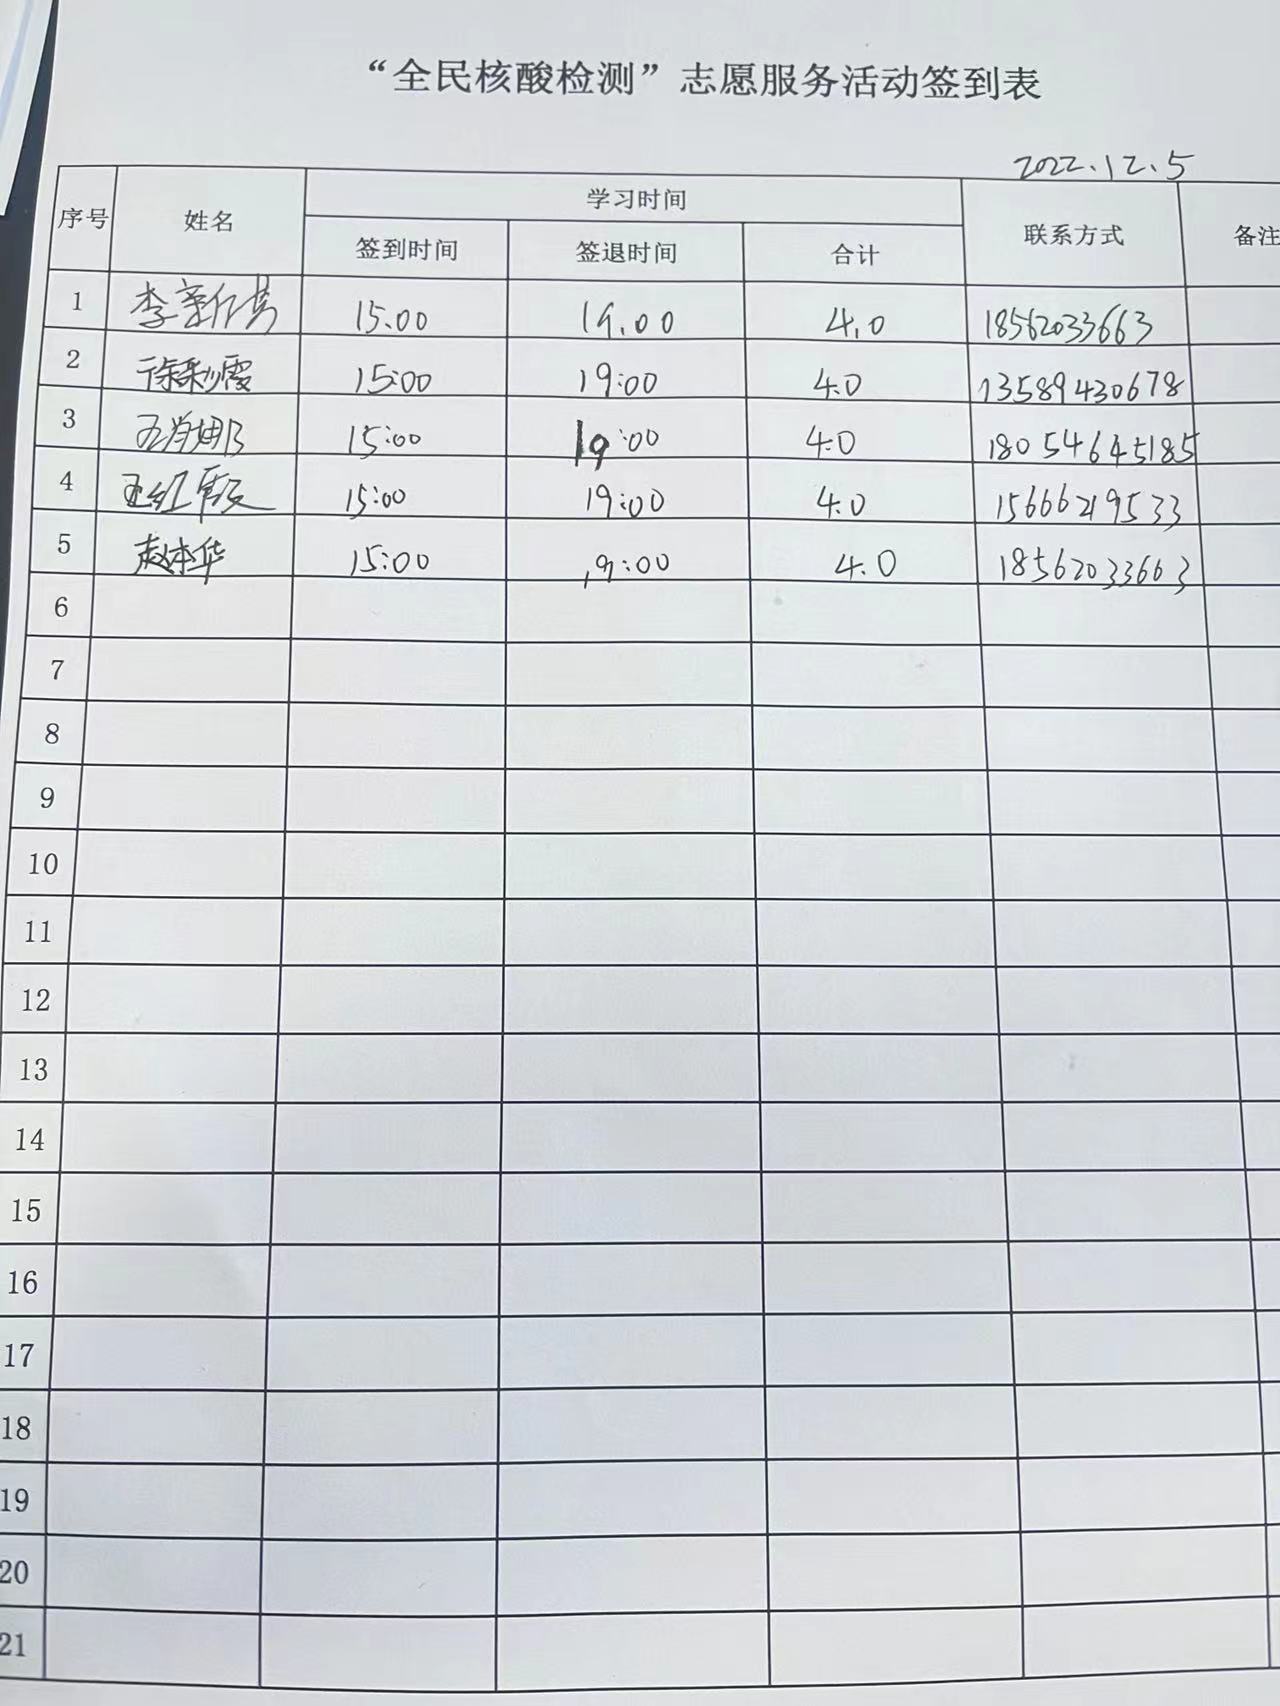 “全民核酸检测”志愿服务活动签到表
2022.12.5
序号 姓名 学习时间 联系方式 备注
签到时间 签退时间 合计
1 15:00 19:00 4.0 18562033663
2 徐彩霞 15:00 19:00 4.0 13589430678
3 王肖娜 15:00 19:00 4.0 18054645185
4 王红霞 15:00 19:00 4.0 15666219533
5 赵体华 15:00 19:00 4.0 18562033663
6
7
8
9
10
11
12
13
14
15
16
17
18
19
20
21